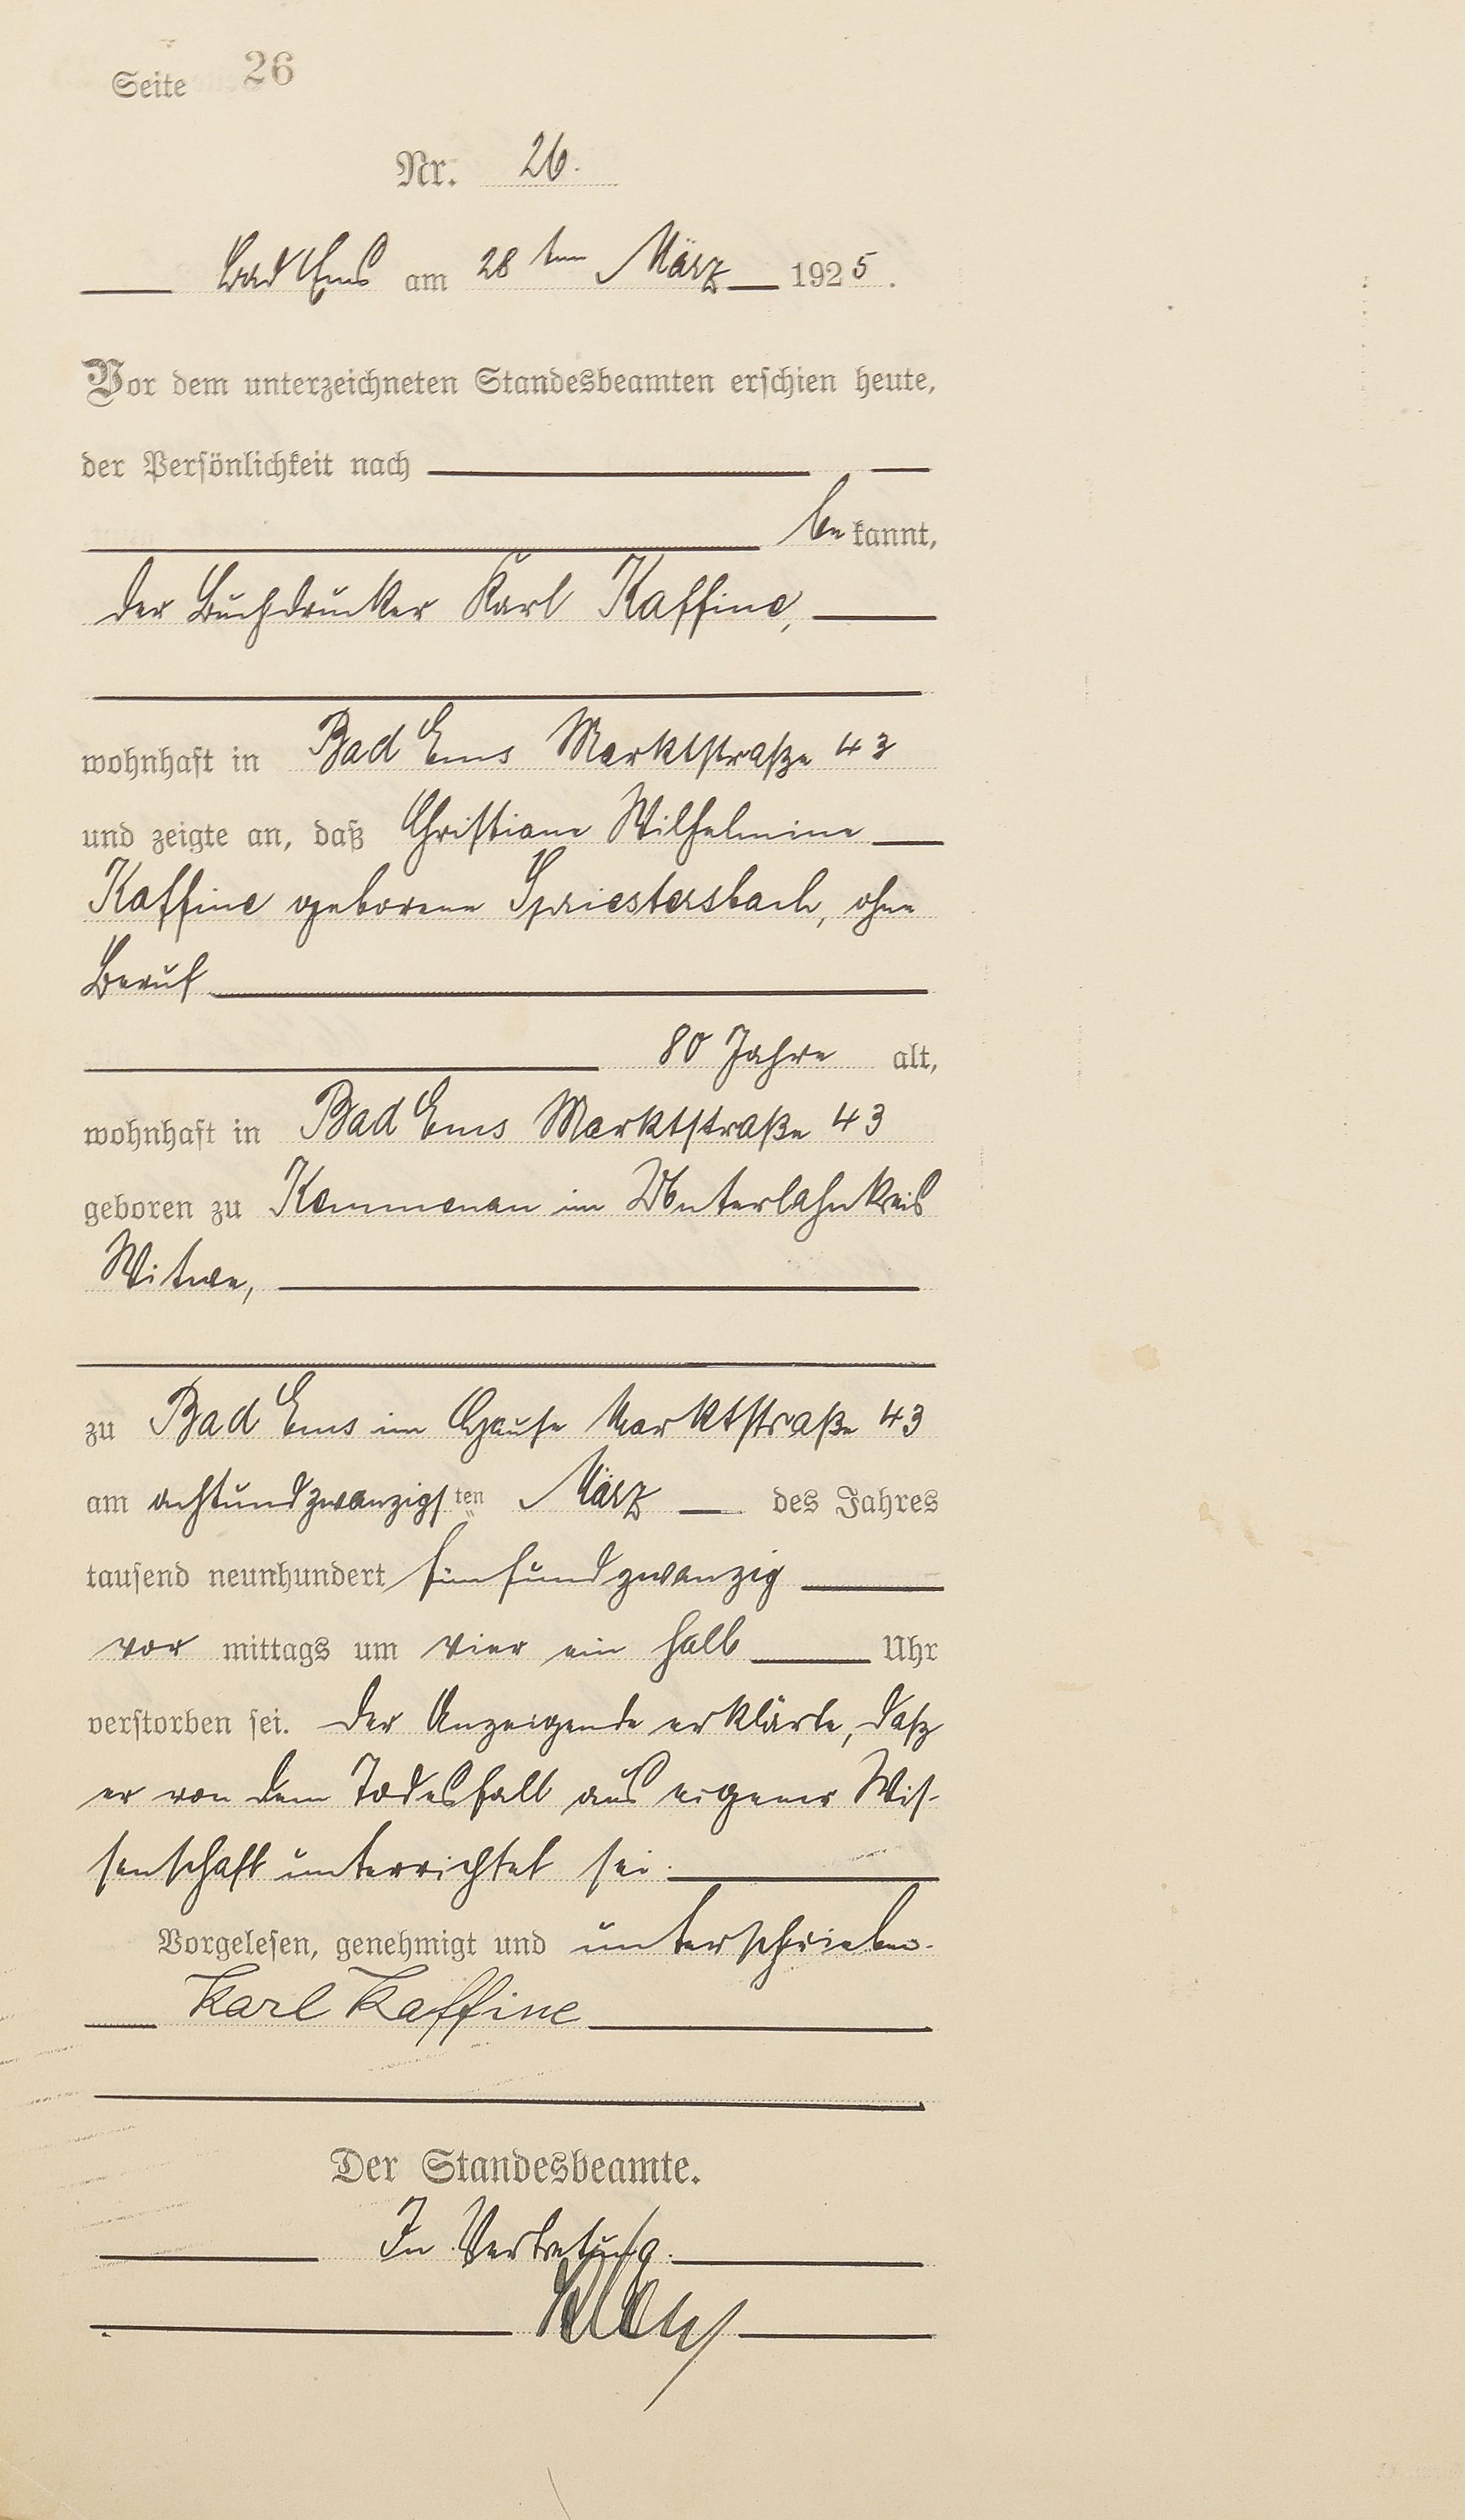 Seite 26
Nr. 26.
Bad Ems am 28 ten März 1925.
Vor dem unterzeichneten Standesbeamten erschien heute,
der Persönlichkeit nach
be kannt,
der Buchdrucker Karl Kaffine,
wohnhaft in Bad Ems Marktstraße 43
und zeigte an, daß Christiane Wilhelmine
Kaffine geborene Spriestersbach, ohne
Beruf
80 Jahre alt,
wohnhaft in Bad Ems Marktstraße 43
geboren zu Kemmenau im Unterlahnkreis
Witwe,
zu Bad Ems im Hause Marktstraße 43
am achtundzwanzigsten März des Jahres
tausend neunhundert fünfundzwanzig
vor mittags um vier ein halb Uhr
verstorben sei. Der Anzeigende erklärte, daß
er von dem Todesfall aus eigener Wis-
senschaft unterrichtet sei.
Vorgelesen, genehmigt und unterschrieben.
Karl Kaffine
Der Standesbeamte.
In Vertretung.